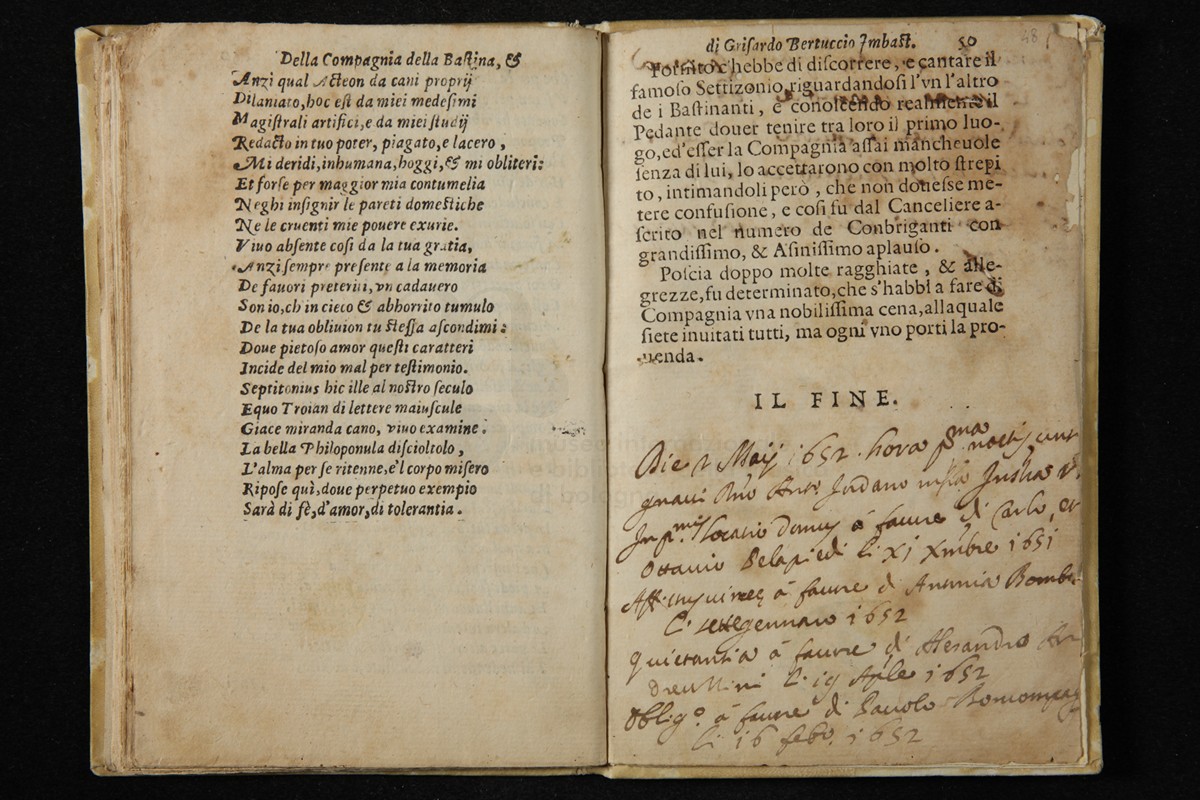 Della Compagnia della Bastina, &
Anzi qual Acteon da cani proprij
Dilaniato, hoc est da miei medesimi
Magistrali artifici, e da miei studij
Redacto in tuo poter, piagato, e lacero,
Mi deridi, inhumana, hoggi, & mi obliteri:
Et forse per maggior mia contumelia
Neghi insignir le pareti domestiche
Ne le cruenti mie pouere exurie.
Viuo absente cosi da la tua gratia,
Anzi sempre presente a la memoria
De fauori preteriti, vn cadauero
Son io, ch in cieco & abhorrito tumulo
De la tua obliuion tu stessa ascondimi:
Doue pietoso amor questi caratteri
Incide del mio mal per testimonio.
Septitonius hic ille al nostro seculo
Equo Troian di lettere maiuscule
Giace miranda cano, viuo examine.
La bella Philoponula discioltolo,
L'alma per se ritenne, e'l corpo misero
Ripose quì, doue perpetuo exempio
Sarà di fè, d'amor, di tolerantia.
di Grisardo Bertuccio Imbast. 50
48
Fornito c'hebbe di discorrere, e cantare il
famoso Settizonio, riguardandosi l'vn l'altro
de i Bastinanti, e conoscendo realmente il
Pedante douer tenire tra loro il primo luo-
go, ed'esser la Compagnia assai mancheuole
senza di lui, lo accettarono con molto strepi
to, intimandoli però, che non douesse me-
tere confusione, e cosi fu dal Canceliere a-
scrito nel numero de Conbriganti con
grandissimo, & Asinissimo aplauso.
Poscia doppo molte ragghiate, & alle-
grezze, fu determinato, che s'habbi a fare di
Compagnia vna nobilissima cena, alla quale
siete inuitati tutti, ma ogni vno porti la pro-
uenda.
IL FINE.
Die 2 Maij 1652. hora p.ma noctis
à fauore di Carlo, et
Ottauio Belapiedi li xi xmbre 1651
à fauore d Antonia
li gennaro 1652
Quietantia à fauore di Alesandro
li 19 Aple 1652
Oblig.o à fauore di Pauolo Boncompag
li 16 febo. 1652